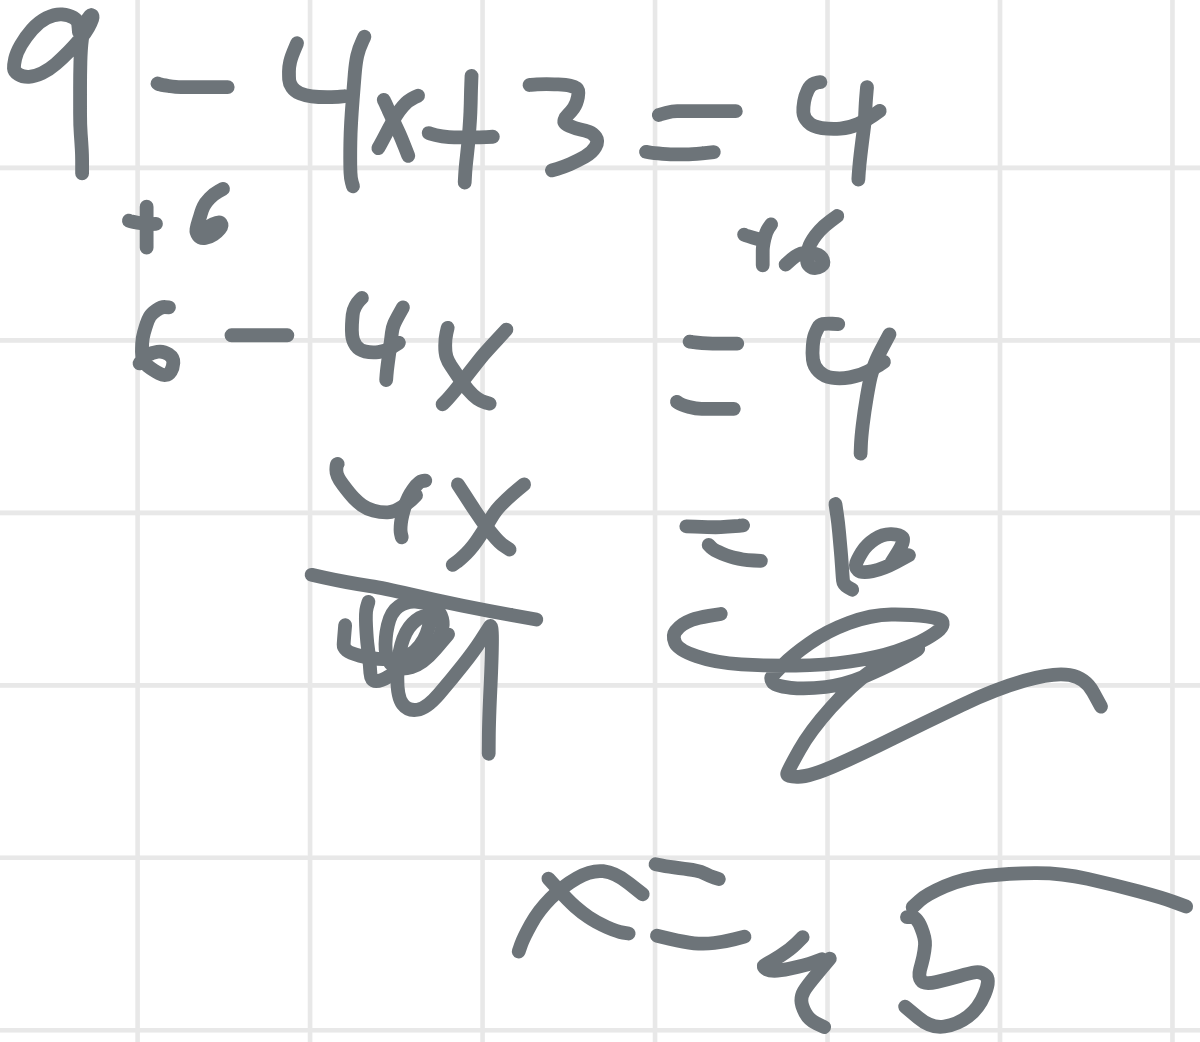 9 - 4x + 3 = 4
+6 +6
6 - 4x = 4
4x = 10
4
x = 4 5